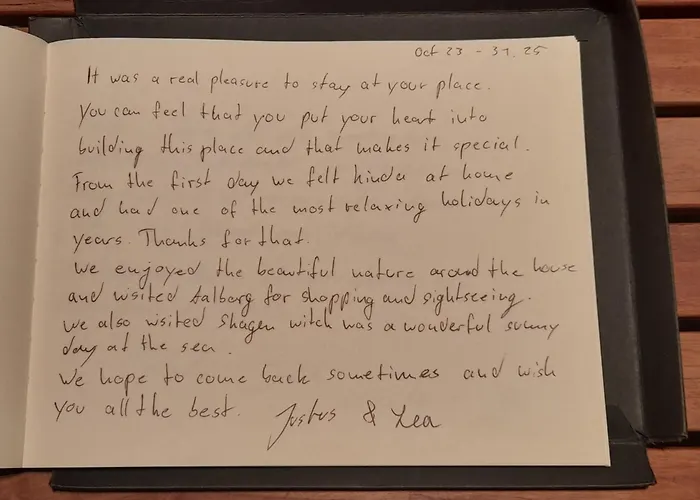 Oct 23 - 31. 25
It was a real pleasure to stay at your place.
You can feel that you put your heart into
building this place and that makes it special.
From the first day we felt kinda at home
and had one of the most relaxing holidays in
years. Thanks for that.
We enjoyed the beautiful nature around the house
and wisited Aalborg for shopping and sightseeing.
We also wisited Skagen witch was a wonderful sunny
day at the sea.
We hope to come back sometimes and wish
you all the best. Justus & Lea